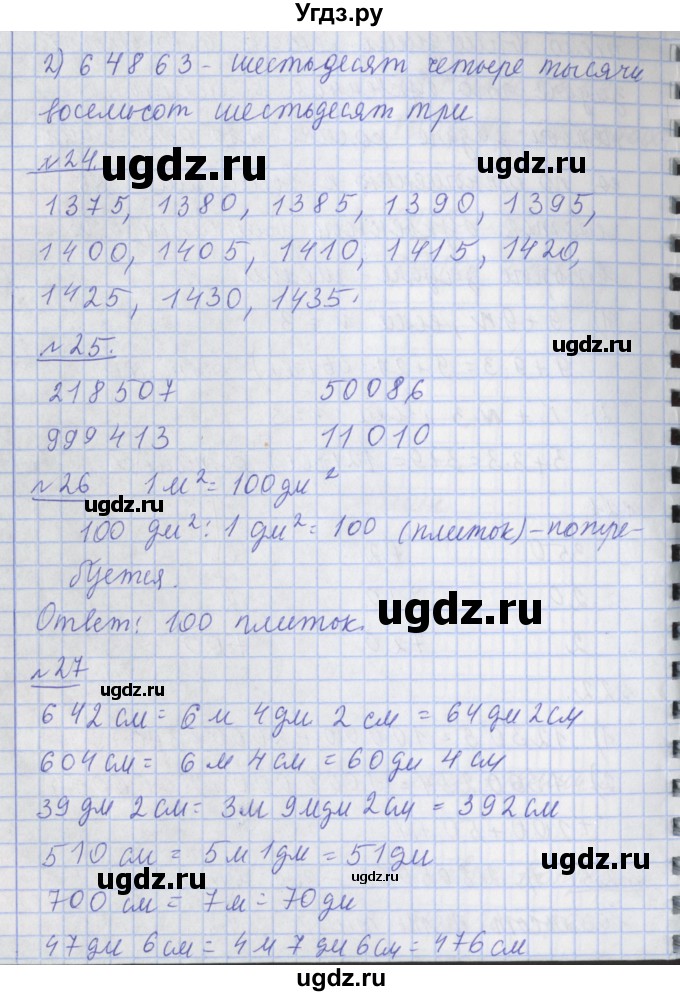 Угдз.ру
2) 64863 - шестьдесят четыре тысячи
восемьсот шестьдесят три
№24.
ugdz.ru
ugdz.ru
1375, 1380, 1385, 1390, 1395,
1400, 1405, 1410, 1415, 1420,
1425, 1430, 1435.
№25.
ugdz.ru
218507 50086
999413 11010
№26 1 м² = 100 дм²
ugdz.ru
100 дм² : 1 дм² = 100 (плиток) - потре-
буется.
Ответ: 100 плиток.
ugdz.ru
№27
ugdz.ru
642 см = 6 м 4 дм 2 см = 64 дм 2 см
604 см = 6 м 4 см = 60 дм 4 см
39 дм 2 см = 3 м 9 мдм 2 см = 392 см
510 см = 5 м 1 дм = 51 дм
ugdz.ru
ugdz.ru
ugdz.ru
700 см = 7 м = 70 дм
47 дм 6 см = 4 м 7 дм 6 см = 476 см
ugdz.ru